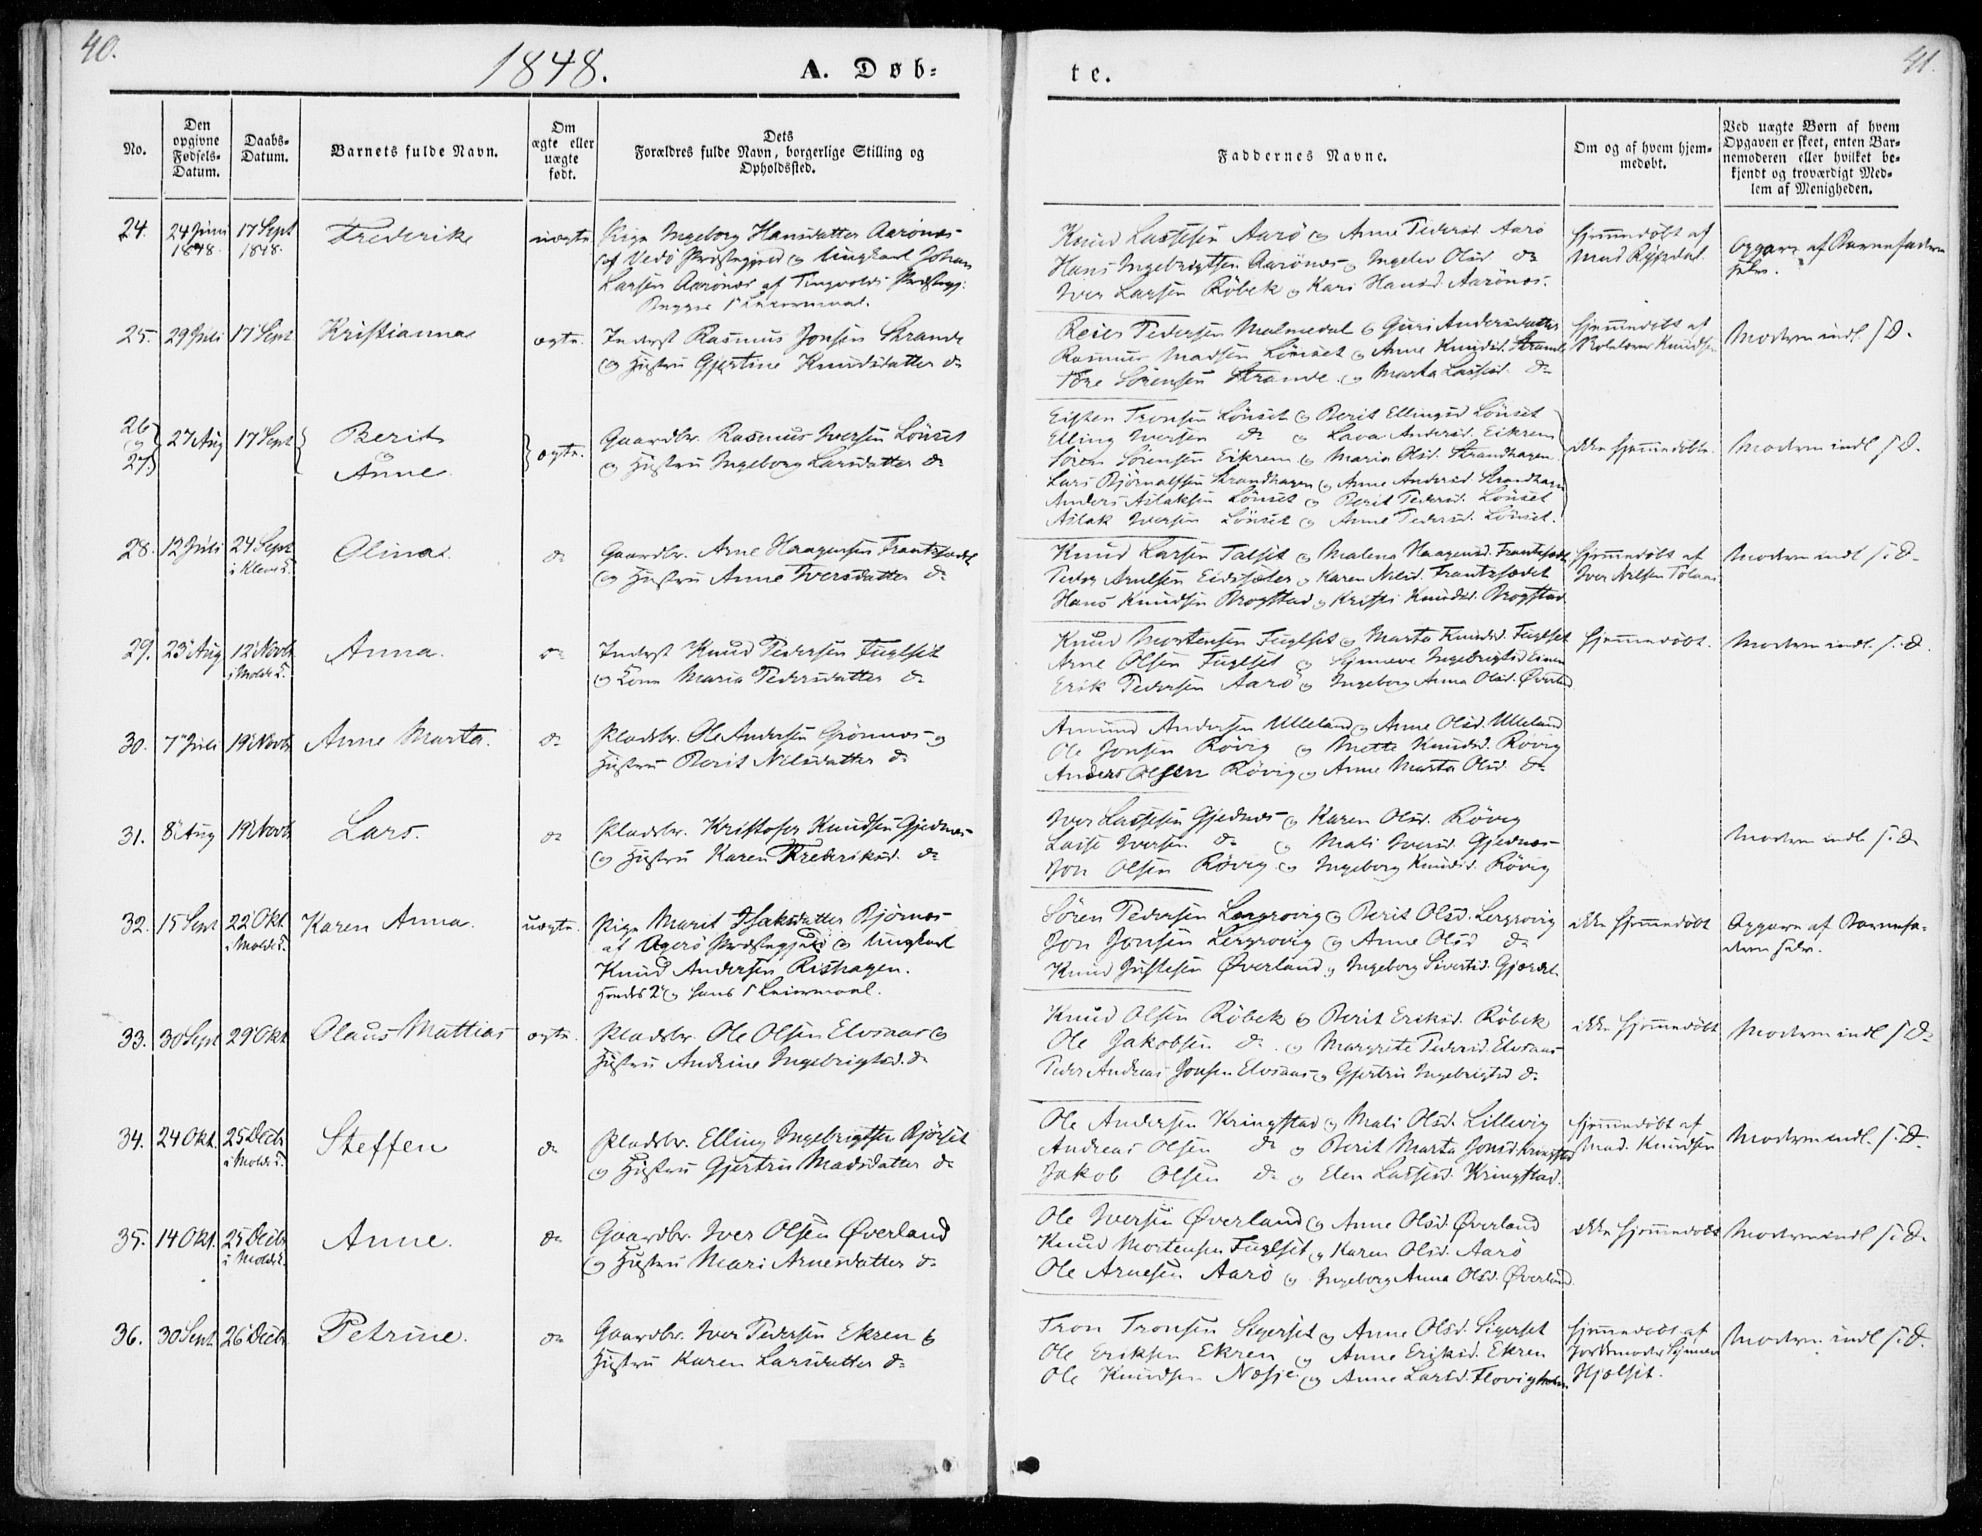 40.
1848.
A. Døb-
No.
Den opgivne Fødsels-Datum.
Daabs-Datum.
Barnets fulde Navn.
Om ægte eller uægte født.
Dets Forældres fulde Navn, borgerlige Stilling og Opholdssted.
24. 24 Juni 1848. 17 Sept 1848. Frederike uægte. Pige Ingeborg Hansdatter Aarönæs
af Vedö Præstegjeld og Ungkarl Johan
Larsen Aarönæs af Tingvolds Præstegj:
Begges 1ste Leiermaal.
25. 29 Juli 17 Sept Kristianna ægte. Inderst Rasmus Jonsen Strande
og Hustru Gjertine Knudsdatter do
26 og 27 27 Aug 17 Sept Berit og Anne ægte. Gaardbr. Rasmus Iversen Lönset
og Hustru Ingeborg Larsdatter do
28. 12 Juli 24 Sept i Kleve K. Olina. do Gaardbr. Arne Haagensen Frantzsædet
og Hustru Anne Iversdatter do
29. 23 Aug 12 Novb i Molde K. Anna. do Inderst Knud Pedersen Fuglset
og Kone Maria Pedersdatter do
30. 7 Juli 19 Novb Anne Marta. do Pladsbr. Ole Andersen Grönnes og
Hustru Berit Nilsdatter do
31. 8 Aug 19 Novb Lars. do Pladsbr. Kristofer Knudsen Gjednæs
og Hustru Karen Frederiksd. do
32. 15 Sept 22 Okt i Molde K. Karen Anna. uægte. Pige Marit Isaksdatter Björnæs
af Agerö Præstegjeld og Ungkarl
Knud Andersen Rishagen.
Hendes 2det og hans 1ste Leiermaal.
33. 30 Sept 29 Okt Olaus Mattias ægte. Pladsbr. Ole Olsen Elvsaas og
Hustru Andrine Ingebrigtsd. do
34. 24 Okt. 25 Decb i Molde K. Steffen do Pladsbr. Elling Ingebrigtsen Bjørset
og Hustru Gjertru Madsdatter do
35. 14 Okt. 25 Decb i Molde K. Anne. do Gaardbr. Iver Olsen Øverland
og Hustru Mari Arnesdatter do
36. 30 Sept. 26 Decb Petrine. do Gaardbr. Iver Pedersen Ekren og
Hustru Karen Larsdatter do
41.
te.
Faddernes Navne.
Om og af hvem hjemmedøbt.
Ved uægte Børn af hvem Opgaven er skeet, enten Barnemoderen eller hvilket bekjendt og troværdigt Medlem af Menigheden.
Knud Lassesen Aarö og Anne Pedersd. Aarö Hjemmedöbt af
Hans Ingebrigtsen Aarönæs og Ingelev Olsd. do Opgave af Barnefaderen selv.
Iver Larsen Röbek og Kari Hansd. Aarönæs.
Reier Pedersen Malmedal og Guri Andersdatter Hjemmedöbt af
Rasmus Madsen Lönset og Anne Knudsd. Strande Knudsen Moderen indl. s. D.
Tore Sörensen Strande og Marta Lassesd. do
Eisten Tronsen Lönset og Berit Ellingsd. Lönset
Elling Iversen do og Andersd. Eikrem ikke hjemmedöbte. Moderen indl. s. D.
Sören Sörensen Eikrem og Maria Olsd. Strandhagen
Lars Björnalfsen Strandhagen og Anne Andersd. Strandhagen
Anders Aslaksen Lönset og Berit Pedersd. Lönset
Aslak Iversen Lönset og Anne Pedersd. Lönset.
Knud Larsen Talset og Malena Haagensd. Frantzsædet Hjemmedöbt af Moderen indl. s. D.
Peder Arnesen Eidsæter og Karen Nilsd. Frantzsædet Iver Nilsen Tolaas
Hans Knudsen Brogstad og Kristi Knudsd. Brogstad.
Knud Mortensen Fuglset og Marta Knudsd. Fuglset Hjemmedöbt. Moderen indl. s. D.
Arne Olsen Fuglset og Synneve Ingebrigtsd.
Erik Pedersen Aarö og Ingeborg Anna Olsd. Øverland
Amund Andersen Ulleland og Anne Olsd. Ulleland
Ole Jonsen Rövig og Mette Knudsd. Rövig
Anders Olsen Rövig og Anne Marta Olsd. do
Iver Lassesen Gjednæs og Karen Olsd. Rövig
Lasse Iversen do og Mali Iversd. Gjednæs Moderen indl. s. D.
Jon Olsen Rövig og Ingeborg Knudsd. Rövig
Sören Pedersen Lergrovig og Berit Olsd. Lergrovig ikke hjemmedöbt Opgave af Barnefaderen selv.
Jon Jonsen Lergrovig og Anne Olsd. do
Knud Justesen Øverland og Ingeborg Sivertsd. Gjærdet
Knud Olsen Röbek og Berit Eriksd. Röbek ikke hjemmedöbt Moderen indl. s. D.
Ole Jakobsen do og Margrete Pedersd. Elvsaas
Peder Andreas Jonsen Elvsaas og Gjertru Ingebrigtsd. do
Ole Andersen Kringstad og Mali Olsd. Lillevig Hjemmedöbt af
Andreas Olsen do og Berit Marta Jonsd. Kringstad Mad. Knudsen Moderen indl. s. D.
Jakob Olsen do og Elen Lassesd. Kringstad.
Ole Iversen Øverland og Anne Olsd. Øverland ikke hjemmedöbt Moderen indl. s. D.
Knud Mortensen Fuglset og Karen Olsd. Aarö
Ole Arnesen Aarö og Ingeborg Anna Olsd. Øverland
Tron Tronsen Sigerset og Anne Olsd. Sigerset Hjemmedöbt af Moderen indl. s. D.
Ole Eriksen Ekren og Anne Eriksd. Ekren Jordemoder Synnev
Ole Knudsen Nøsje og Anne Larsd. Flovigholm Hjelset.